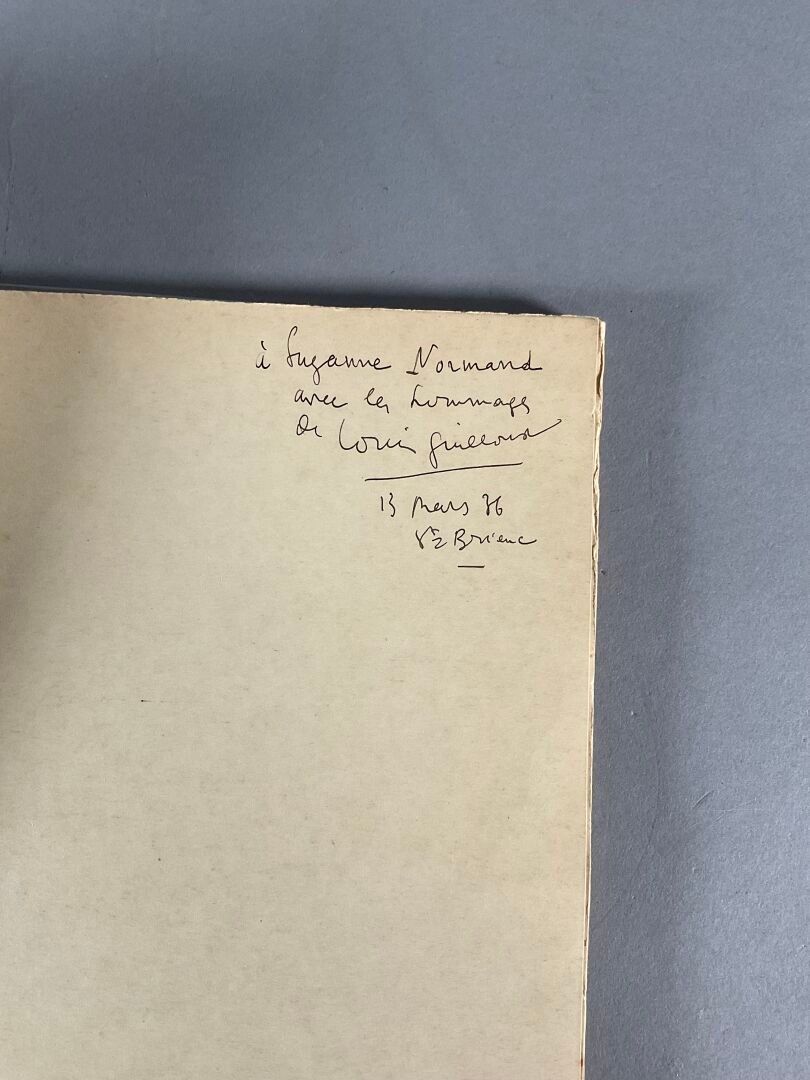 à Suzanne Normand
avec les hommages
de Louis Guilloux
13 mars 36
St Brieuc